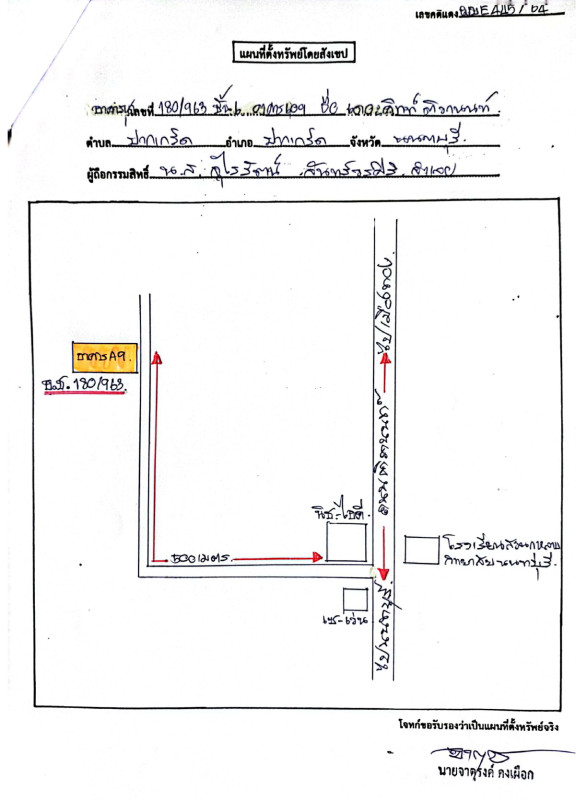 เลขคดีแดง ผบE445/64
แผนที่ตั้งทรัพย์โดยสังเขป
อาคารชุดเลขที่ 180/963 ชั้น อาคาร ชื่อ ติวานนท์
ตำบล ปากเกร็ด อำเภอ ปากเกร็ด จังหวัด นนทบุรี
ผู้ถือกรรมสิทธิ์ น.ส. สุไรรัตน์
ไปเมืองทอง
อาคาร A9.
ห.ช. 180/963
ถนนติวานนท์
นิช-ไอดี
500 เมตร
โรงเรียนสวนกุหลาบ
วิทยาลัย นนทบุรี
เซเว่น
ไปนนทบุรี
โจทก์ขอรับรองว่าเป็นแผนที่ตั้งทรัพย์จริง
นายจาตุรงค์ คงเผือก